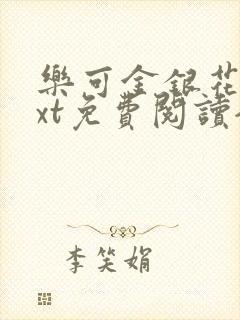 樂可金銀花
xt免費閱讀
李笑娟